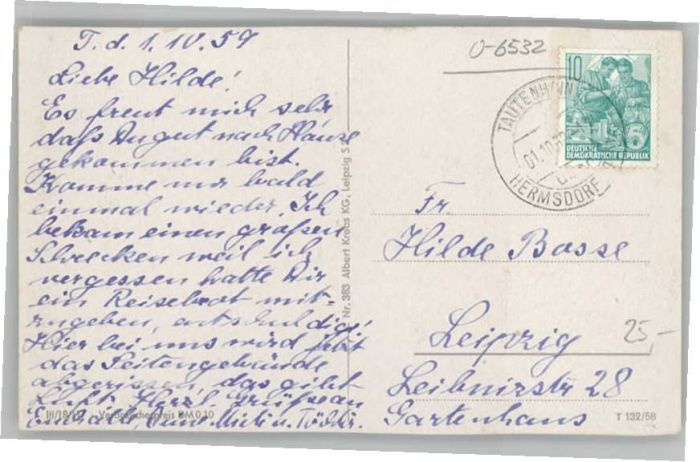 T. d. 1.10.59
Liebe Hilde!
Es freut mich sehr
daß Du gut nach Hause
gekommen bist.
Komme nur bald
einmal wieder. Ich
bekam einen großen
Schrecken weil ich
vergessen hatte Dir
ein Reisebrot mit-
zugeben, entschuldige!
Hier bei uns wird jetzt
das Seitengebäude
abgerissen, das gibt
Luft. Herzl. Grüße an
Euch alle
III/18/
Verbraucherpreis DM 0,10
Nr. 383 Albert Krebs KG, Leipzig S
0-6532
10
DEUTSCHE
DEMOKRATISCHE REPUBLIK
TAUTENHAIN
01.10.
HERMSDORF
Fr.
Hilde Bosse
Leipzig
Leibnizstr 28
Gartenhaus
25,-
T 132/58